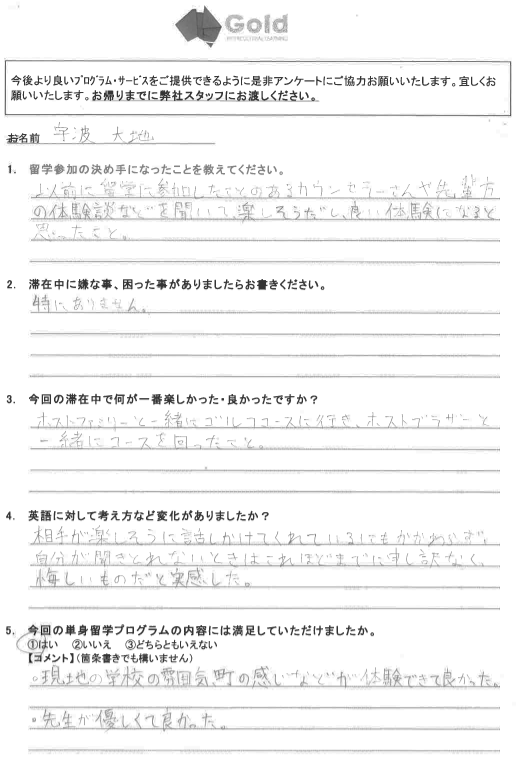 Gold
INTERCULTURAL LEARNING
今後より良いプログラム・サービスをご提供できるように是非アンケートにご協力お願いいたします。宜しくお
願いいたします。お帰りまでに弊社スタッフにお渡しください。
お名前 宇波 大地
1. 留学参加の決め手になったことを教えてください。
以前に留学に参加したことのあるカウンセラーさんや先輩方
の体験談などを聞いて、楽しそうだし、良い体験になると
思ったこと。
2. 滞在中に嫌な事、困った事がありましたらお書きください。
特にありません。
3. 今回の滞在中で何が一番楽しかった・良かったですか？
ホストファミリーと一緒にゴルフコースに行き、ホストブラザーと
一緒にコースを回ったこと。
4. 英語に対して考え方など変化がありましたか？
相手が楽しそうに話しかけてくれているにもかかわらず、
自分が聞きとれないときはこれほどまでに申し訳なく、
悔しいものだと実感した。
5. 今回の単身留学プログラムの内容には満足していただけましたか。
①はい ②いいえ ③どちらともいえない
【コメント】(箇条書きでも構いません)
・現地の学校の雰囲気、町の感じなどが体験できて良かった。
・先生が優しくて良かった。